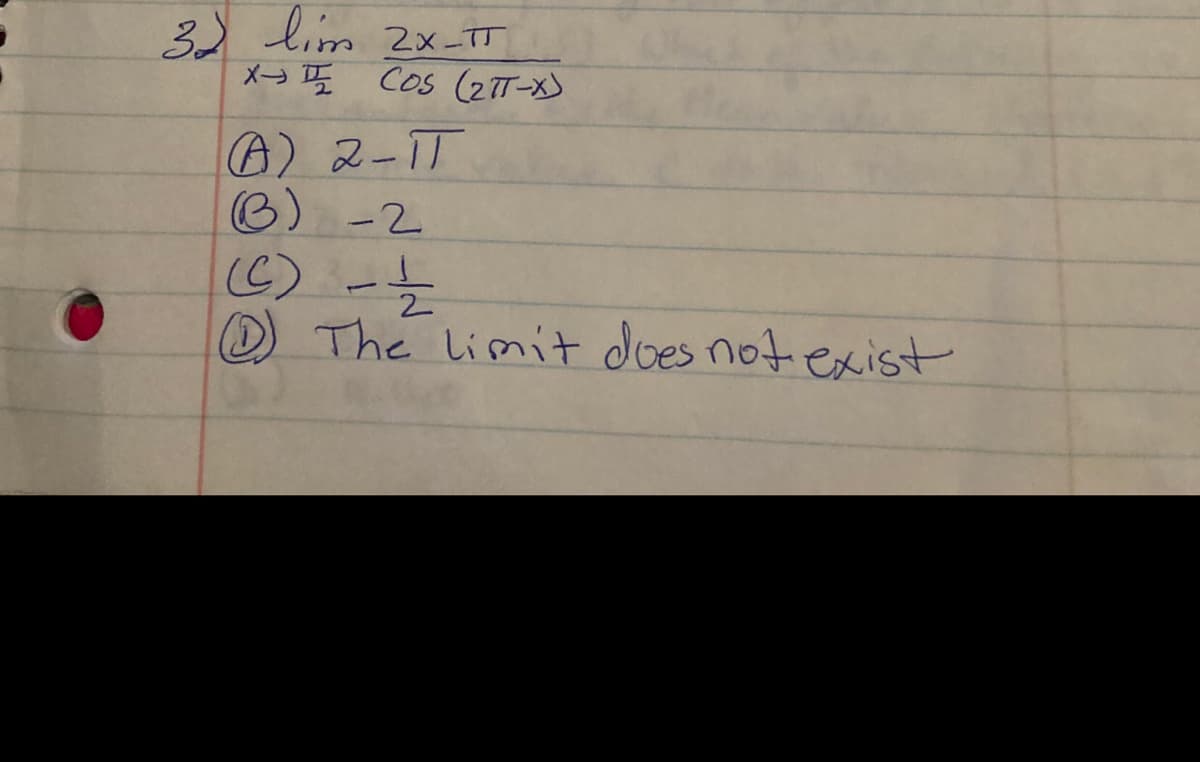 3) lim 2x-π
x→π/2 Cos (2π-x)
(A) 2-π
(B) -2
(C) -1/2
(D) The limit does not exist